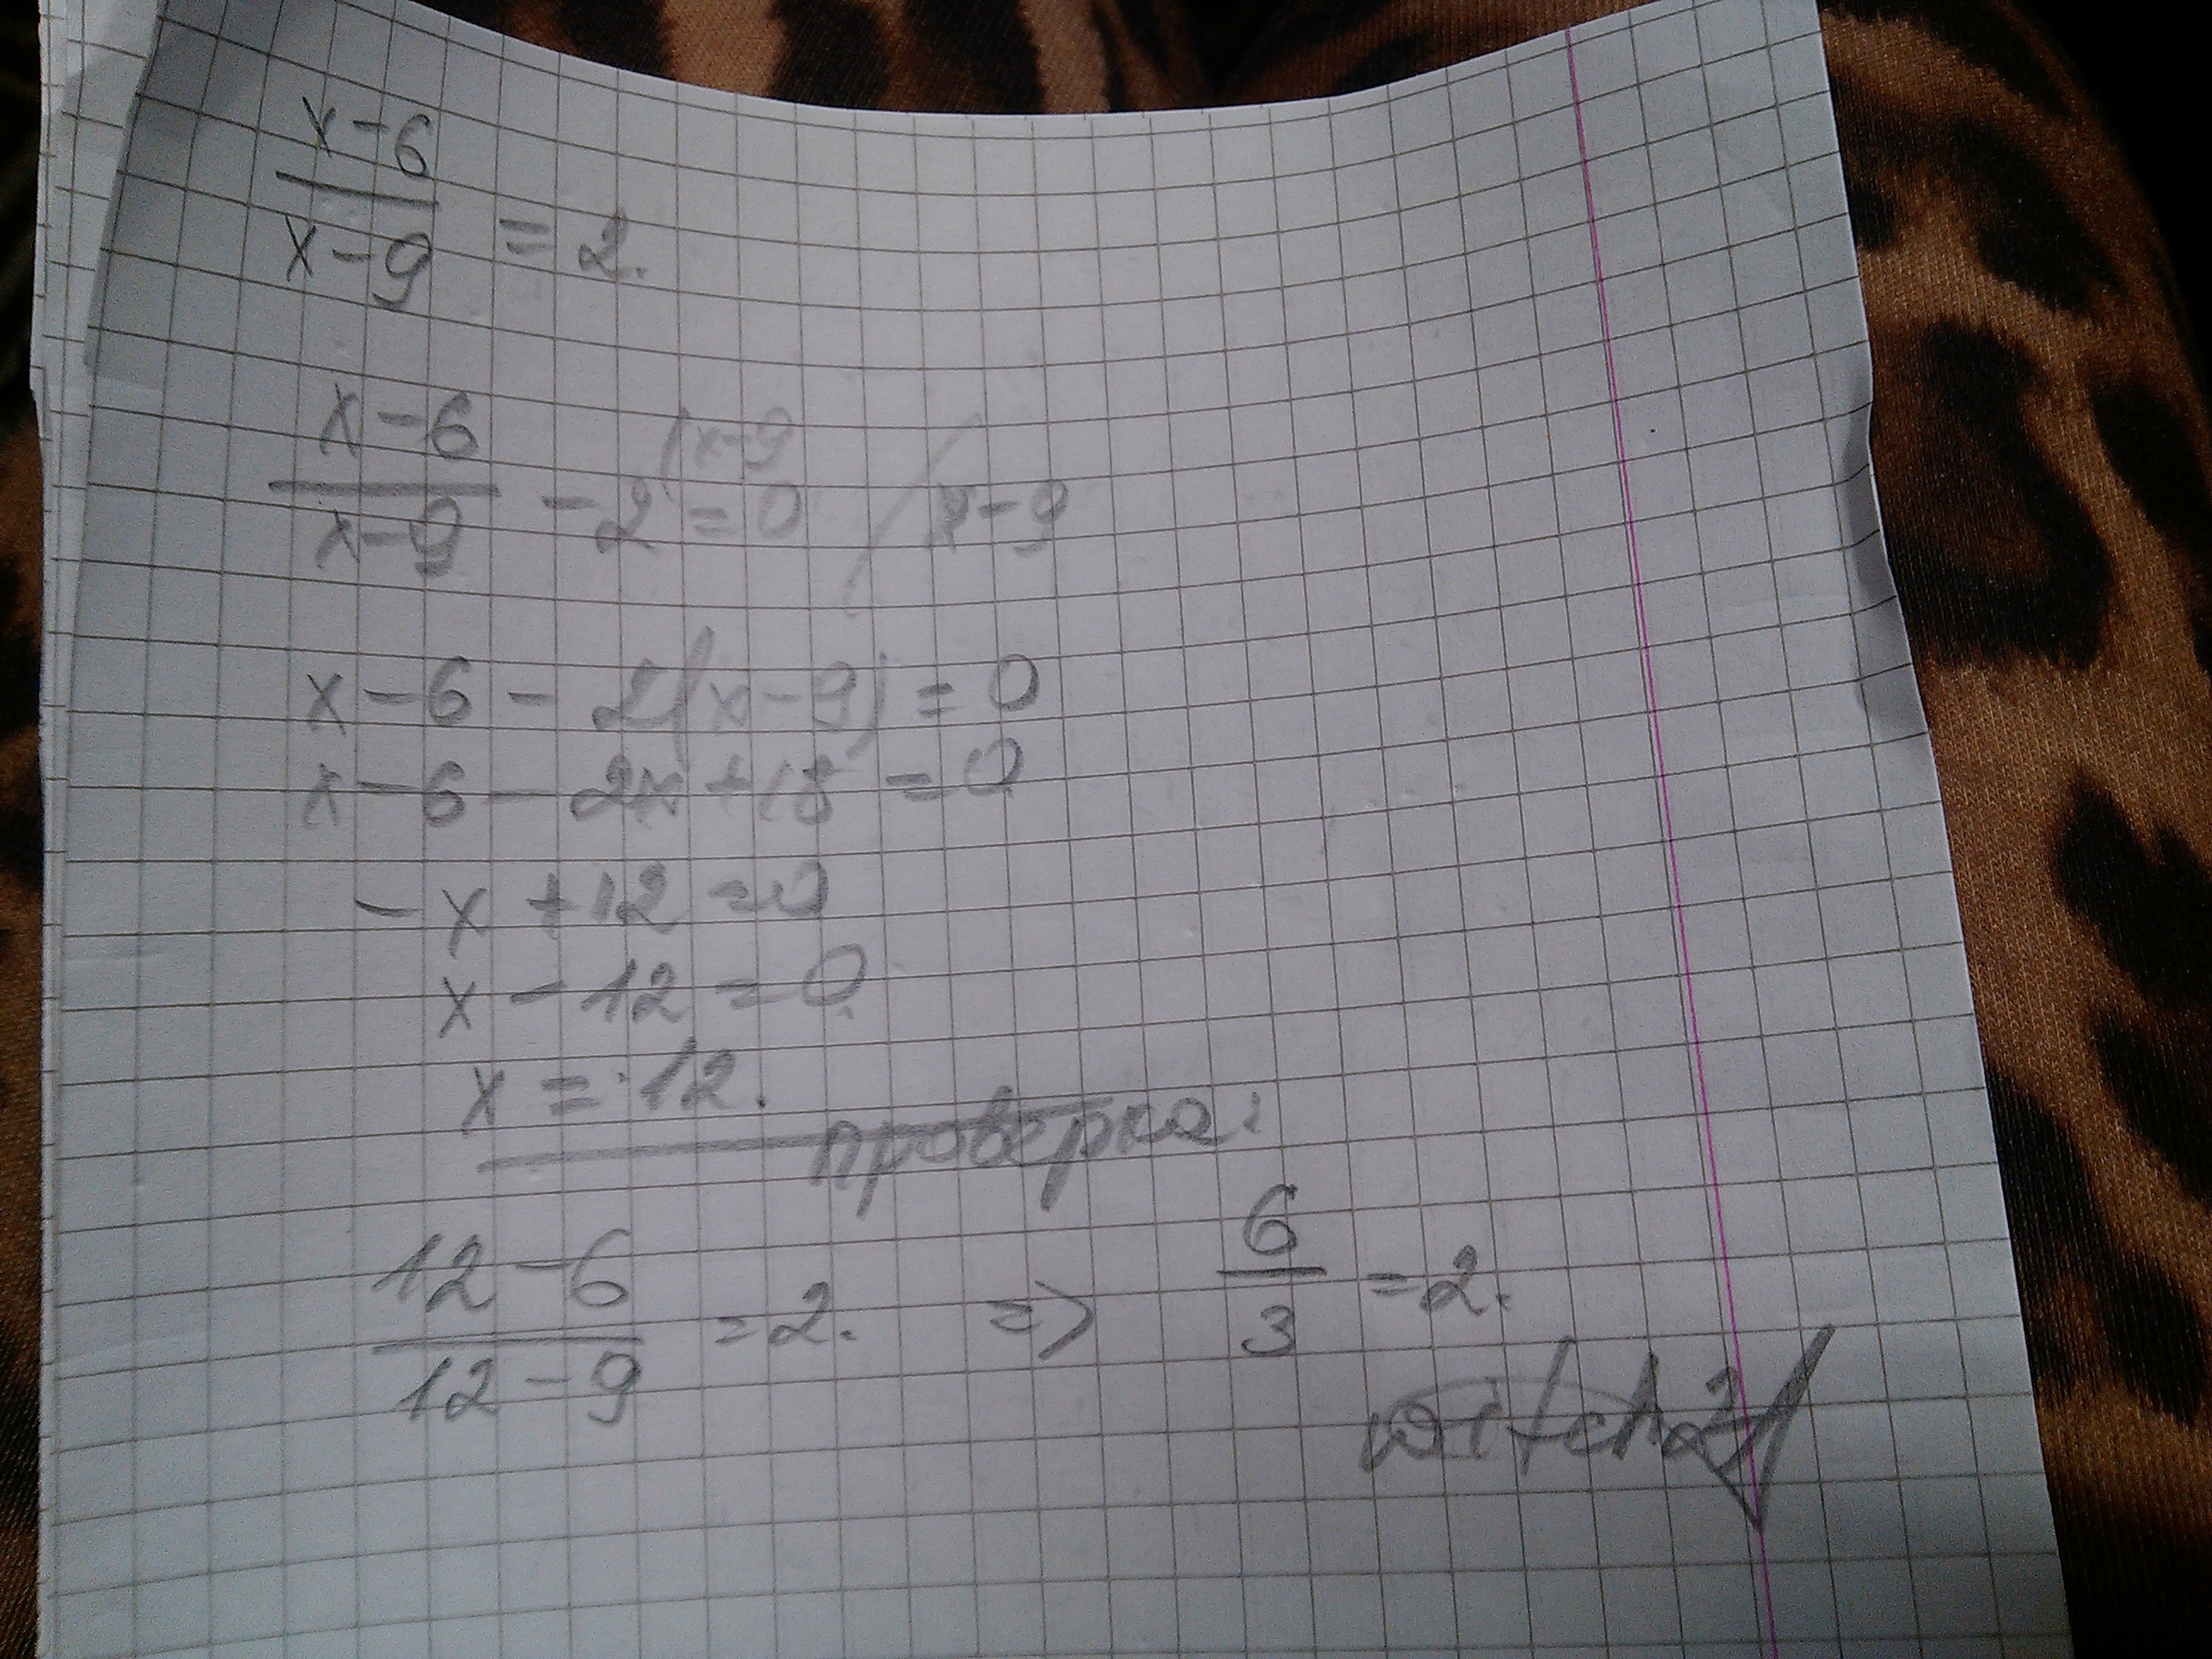 x-6
—— = 2.
x-9
x-6
—— - 2 (x-9 = 0 / x-9
x-9
x-6-2(x-9)=0
x-6-2x+18=0
-x+12=0
x-12=0
x=12.
проверка:
12-6
—— = 2. => 6/3 = 2.
12-9
witch21